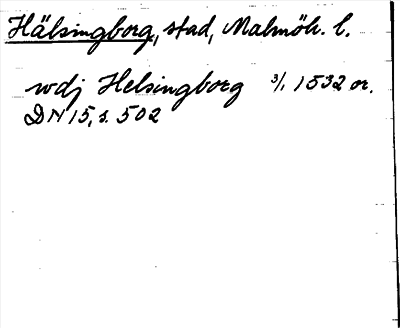 Hälsingborg, stad, Malmöh. l.
wdj Helsingborg 3/1 1532 or.
DN 15, s. 502